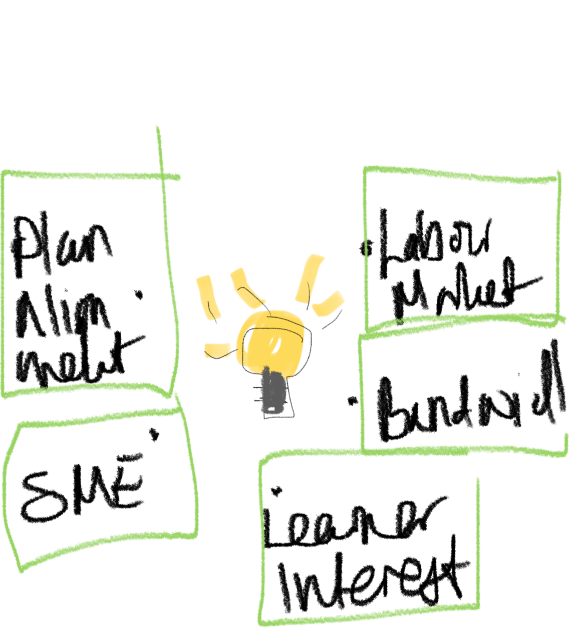 Plan
Align
ment
SME
Labour
Market
Learner
Interest